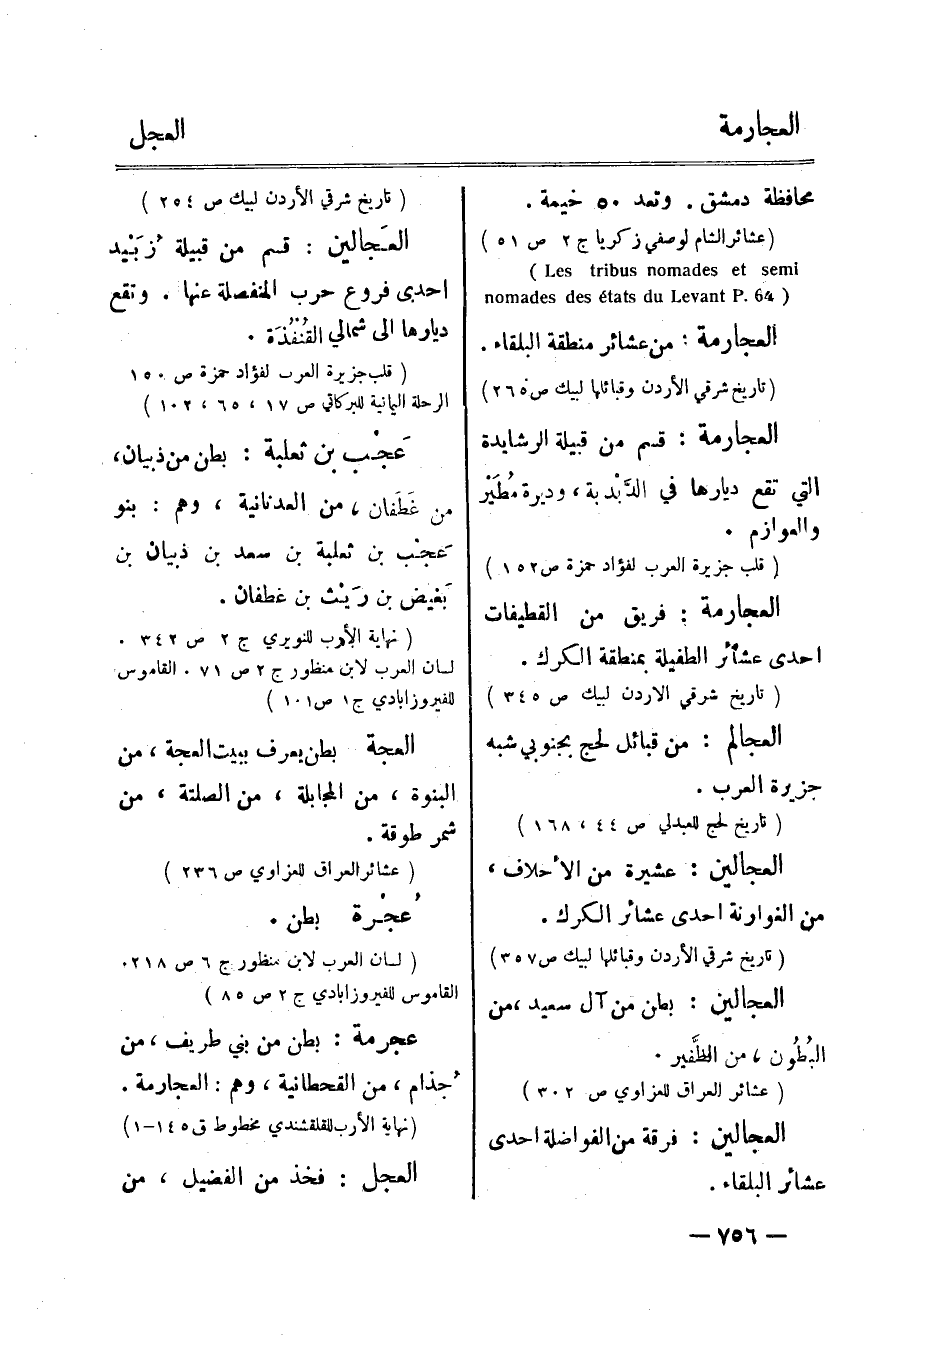 العجارمة
العجل
محافظة دمشق . وتعد ٥٠ خيمة .
(عشائر الشام لوصفي زكريا ج ٢ ص ٥١ )
( Les tribus nomades et semi
nomades des états du Levant P. 64 )
العجارمة : من عشائر منطقة البلقاء .
(تاريخ شرقي الأردن وقبائلها لبيك ص ٢٦٥)
العجارمة : قسم من قبيلة الرشايدة
التي تقع ديارها في الدَّبْدبة ، وديرة مُطَيْر
والعوازم .
( قلب جزيرة العرب لفؤاد حمزة ص ١٥٢ )
العجارمة : فريق من القطيفات
احدى عشائر الطفيلة بمنطقة الكرك .
( تاريخ شرقي الاردن لبيك ص ٣٤٥ )
العجالم : من قبائل لحج بجنوبي شبه
جزيرة العرب .
( تاريخ لحج للعبدلي ص ٤٤ ، ١٦٨ )
العجالين : عشيرة من الأحلاف ،
من الغوارنة احدى عشائر الكرك .
( تاريخ شرقي الأردن وقبائلها لبيك ص ٣٥٧)
العجالين : بطن من آل سعيد ، من
البُطُون ، من الظَّفير .
( عشائر العراق للعزاوي ص ٣٠٢ )
العجالين : فرقة من الفواضلة احدى
عشائر البلقاء .
( تاريخ شرقي الأردن لبيك ص ٢٥٤ )
العَجالين : قسم من قبيلة زُبَيْد
احدى فروع حرب المنفصلة عنها . وتقع
ديارها الى شمالي القُنْفُذَة .
( قلب جزيرة العرب لفؤاد حمزة ص ١٥٠
الرحلة اليمانية للبركاتي ص ١٧ ، ٦٥ ، ١٠٢ )
عَجْب بن ثعلبة : بطن من ذبيان ،
من غَطَفان ، من العدنانية ، وهم : بنو
عَجْب بن ثعلبة بن سعد بن ذبيان بن
بَغيض بن رَيْث بن غطفان .
( نهاية الأرب للنويري ج ٢ ص ٣٤٢ .
لسان العرب لابن منظور ج ٢ ص ٧١ . القاموس
للفيروزابادي ج ١ ص ١٠١ )
العجة بطن يعرف ببيت العجة ، من
البنوة ، من المجابلة ، من الصلتة ، من
شمر طوقة .
( عشائر العراق للعزاوي ص ٢٣٦ )
عُجْرة بطن .
( لسان العرب لابن منظور ج ٦ ص ٢١٨.
القاموس للفيروزابادي ج ٢ ص ٨٥ )
عجرمة : بطن من بني طريف ، من
جُذام ، من القحطانية ، وهم : العجارمة .
(نهاية الأرب للقلقشندي مخطوط ق ١٤٥-١)
العجل : فخذ من الفضيل ، من
— ٧٥٦ —